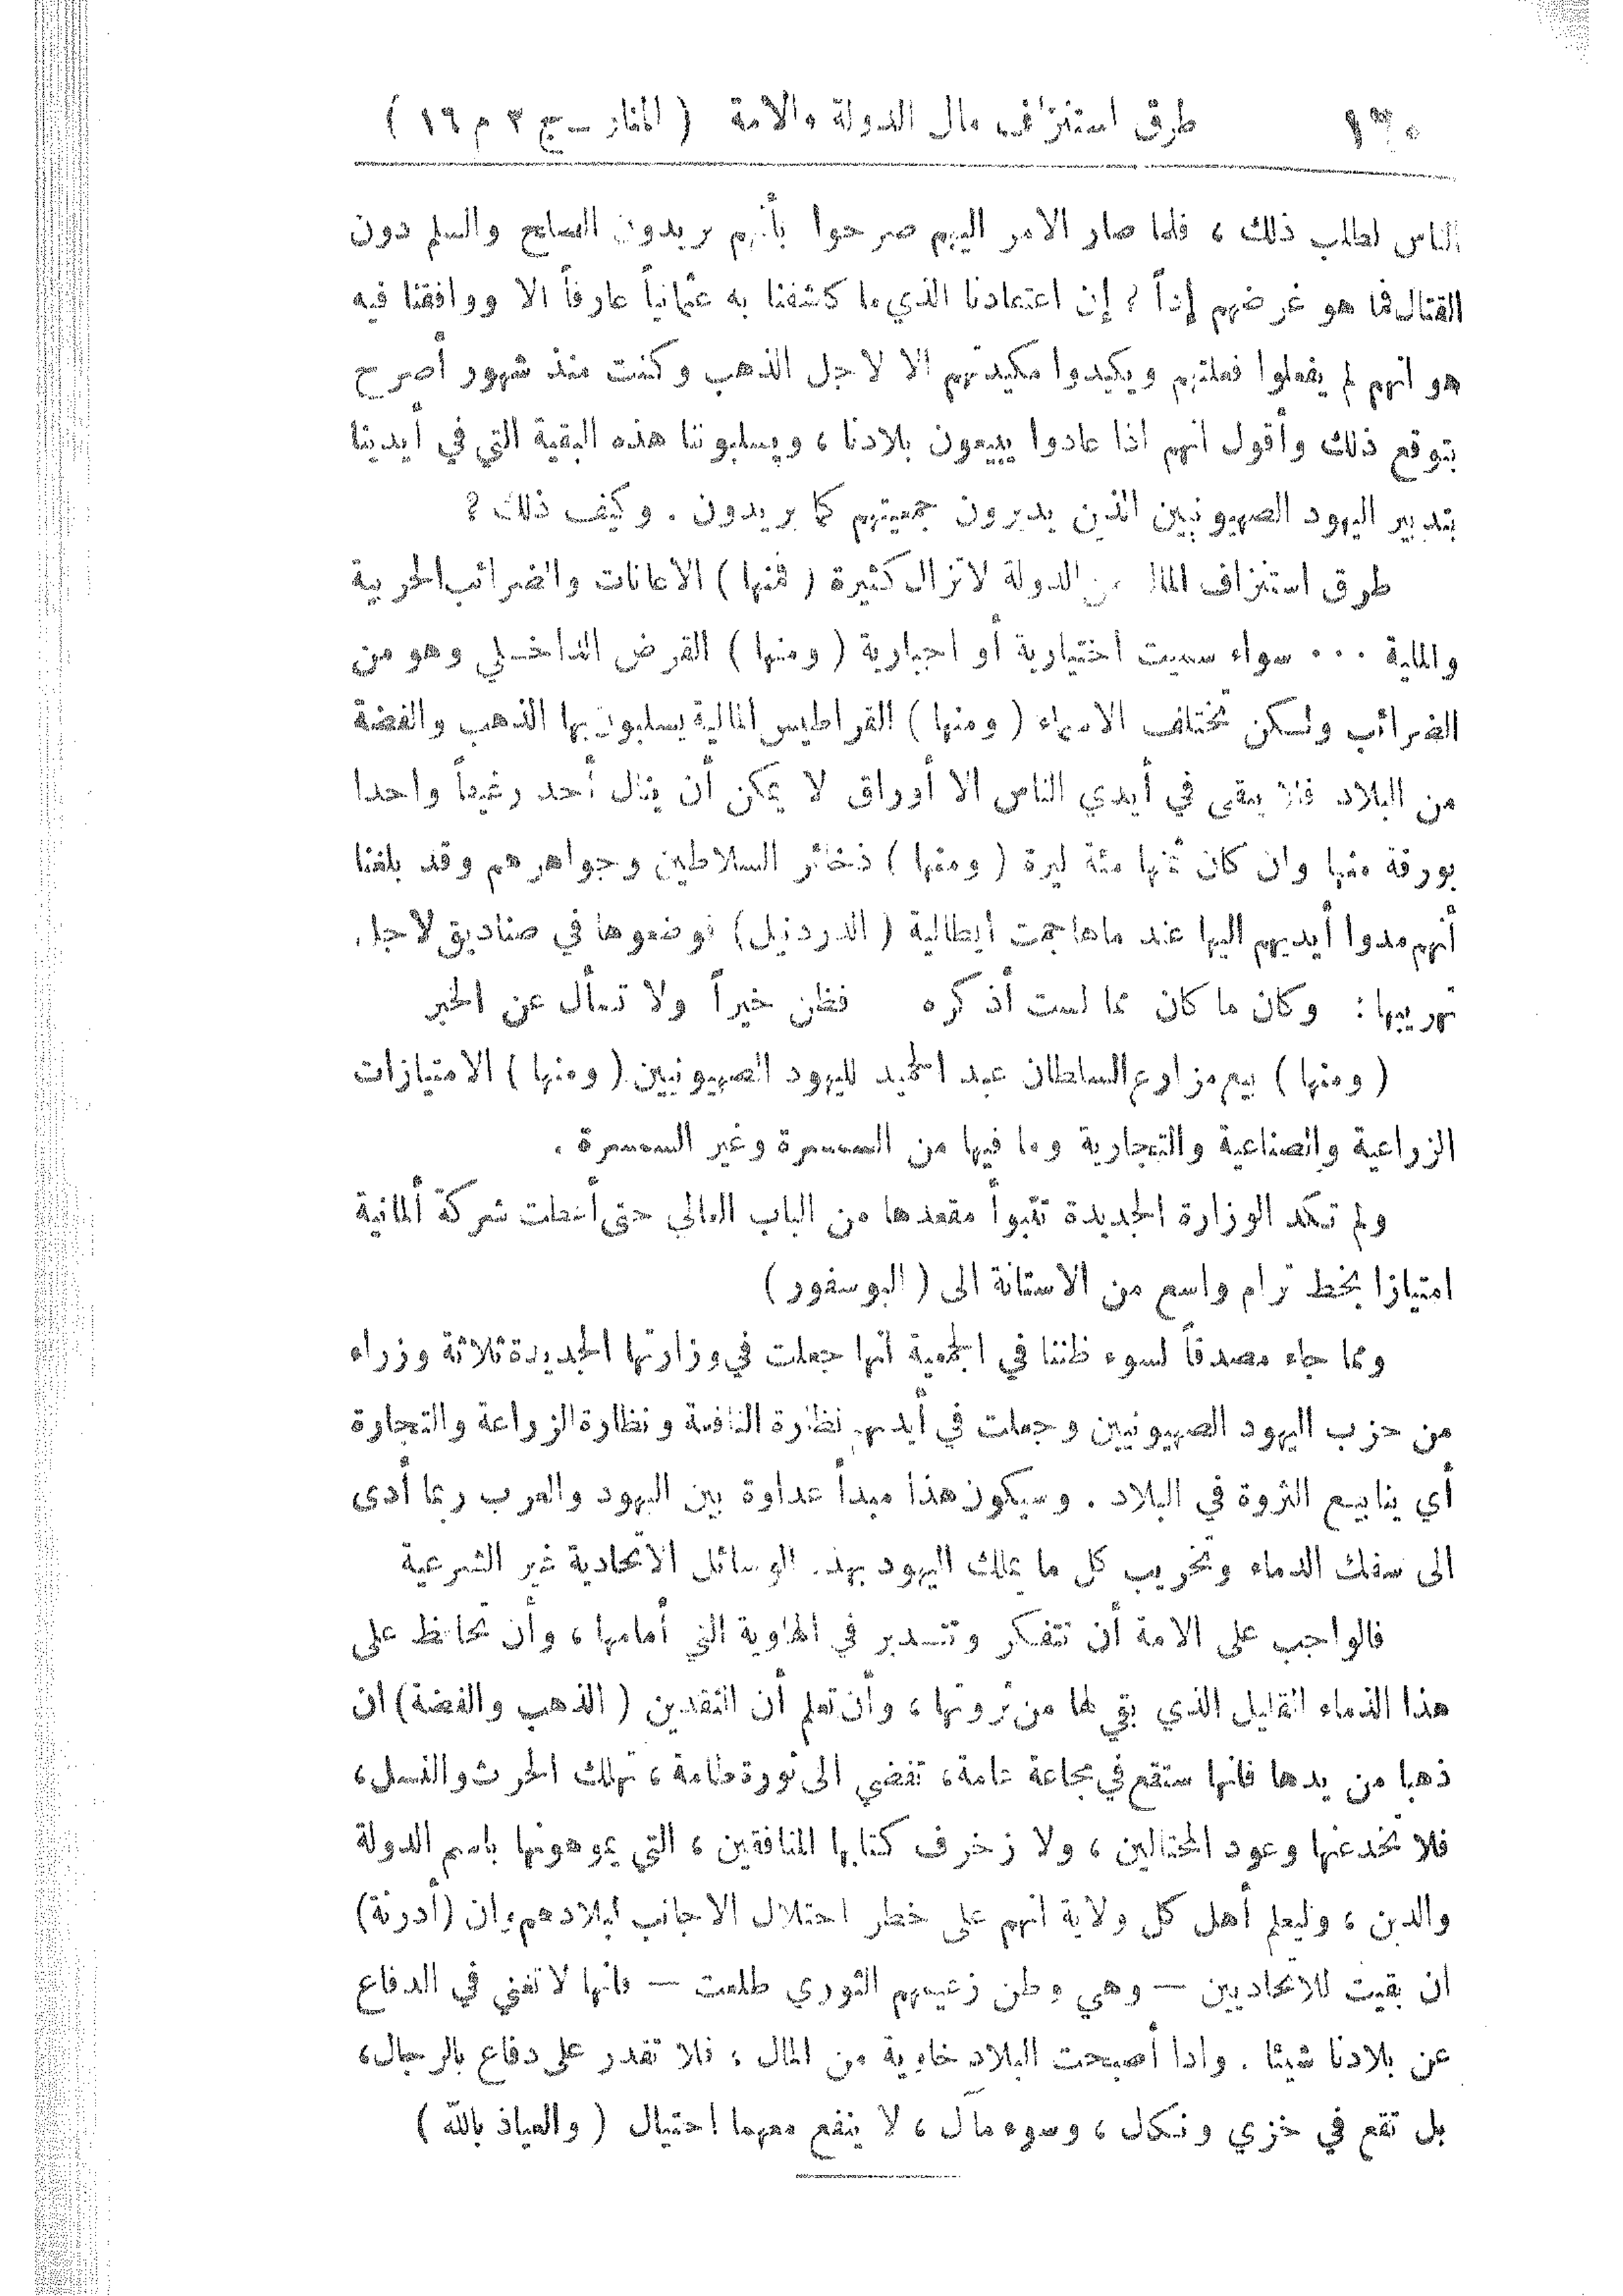 طرق استنزاف مال الدولة والامة ( المنار – ج ٢ م ١٦ )
الناس لطلب ذلك ، فلما صار الامر اليهم صرحوا بأنهم يريدون الصلح والسلم دون
القتال فما هو غرضهم إذاً ؟ إن اعتقادنا الذي ما كاشفنا به عثمانياً عارفاً الا ووافقنا فيه
هو انهم لم يفعلوا فعلتهم ويكيدوا مكيدتهم الا لاجل الذهب وكنت منذ شهور أصرح
بتوقع ذلك وأقول انهم اذا عادوا يبيعون بلادنا ، ويسلبوننا هذه البقية التي في أيدينا
بتدبير اليهود الصهيونيين الذين يديرون جمعيتهم كما يريدون . وكيف ذلك ؟
طرق استنزاف المال من الدولة لا تزال كثيرة ( فمنها ) الاعانات والضرائب الحربية
والمالية ٠٠٠ سواء سميت اختيارية أو اجبارية ( ومنها ) القرض الداخلي وهو من
الضرائب ولكن تختلف الاسماء ( ومنها ) القراطيس المالية يسلبون بها الذهب والفضة
من البلاد فلا يبقى في أيدي الناس الا أوراق لا يمكن أن ينال أحد رغيفاً واحدا
بورقة منها وان كان ثمنها مئة ليرة ( ومنها ) ذخائر السلاطين وجواهرهم وقد بلغنا
أنهم مدوا أيديهم اليها عند ما هاجمت ايطالية ( الدردنيل ) فوضعوها في صناديق لاجل
تهريبها : وكان ما كان مما لست أذكره فظن خيراً ولا تسأل عن الخبر
( ومنها ) بيع مزارع السلطان عبد الحميد لليهود الصهيونيين ( ومنها ) الامتيازات
الزراعية والصناعية والتجارية وما فيها من السمسرة وغير السمسرة .
ولم تكد الوزارة الجديدة تتبوأ مقعدها من الباب العالي حتى أعطت شركة ألمانية
امتيازا بخط ترام واسع من الاستانة الى ( البوسفور )
ومما جاء مصدقاً لسوء ظننا في الجمعية أنها جعلت في وزارتها الجديدة ثلاثة وزراء
من حزب اليهود الصهيونيين وجعلت في أيديهم نظارة النافعة ونظارة الزراعة والتجارة
أي ينابيع الثروة في البلاد . وسيكون هذا مبدأ عداوة بين اليهود والعرب ربما أدى
الى سفك الدماء وتخريب كل ما يملك اليهود بهذه الوسائل الاتحادية غير الشرعية
فالواجب على الامة أن تتفكر وتتدبر في الهاوية التي أمامها ، وأن تحافظ على
هذا الذماء القليل الذي بقي لها من ثروتها ، وأن تعلم أن النقدين ( الذهب والفضة ) ان
ذهبا من يدها فانها ستقع في مجاعة عامة ، تفضي الى ثورة طامة ، تهلك الحرث والنسل ،
فلا تخدعنها وعود المحتالين ، ولا زخرف كتابها المنافقين ، التي يموهونها باسم الدولة
والدين ، وليعلم أهل كل ولاية أنهم على خطر احتلال الاجانب لبلادهم وان ( أدرنة )
ان بقيت للاتحاديين — وهي وطن زعيمهم الثوري طلعت — فانها لا تغني في الدفاع
عن بلادنا شيئا . واذا أصبحت البلاد خاوية من المال ، فلا تقدر على دفاع بالرجال ،
بل تقع في خزي ونكال ، وسوء مآل ، لا ينفع معهما احتيال ( والعياذ بالله )